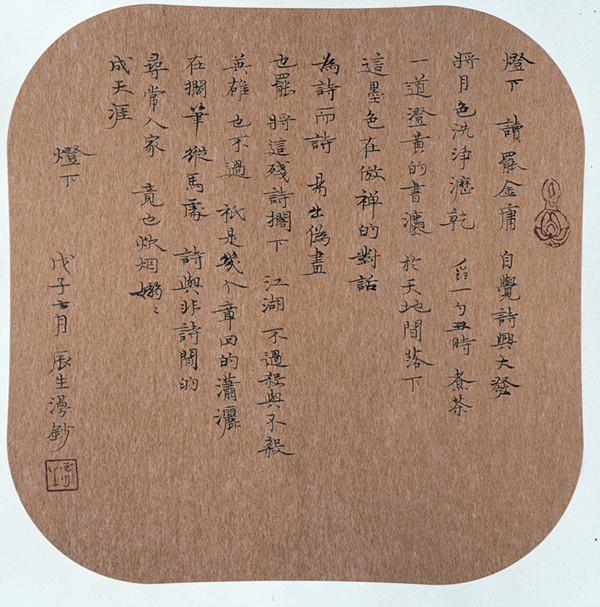 燈下 讀罷金庸 自覺詩興大發
將月色洗淨瀝乾 舀一勺丑時 煮茶
一道澄黃的書瀑 於天地間落下
這墨色在做禪的對話
為詩而詩 易出偽畫
也罷 將這殘詩擱下 江湖 不過殺與不殺
英雄 也不過 祇是幾个章回的瀟灑
在擱筆縱馬處 詩與非詩間的
尋常人家 竟也炊烟嫋〻
成天涯
燈下
戊子 月 辰生漫鈔